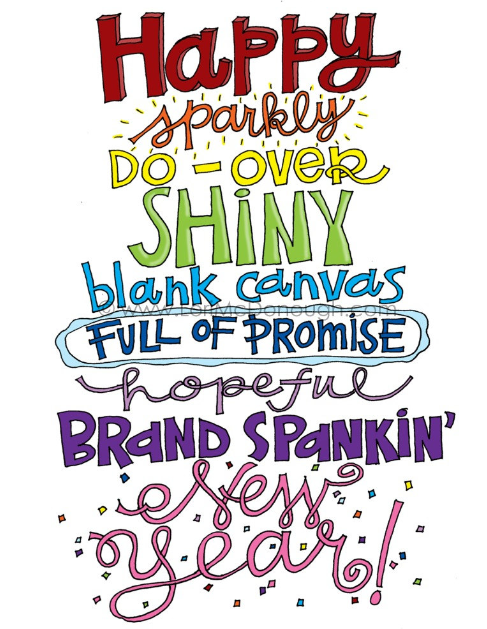 Happy
sparkly
DO-OVER
SHiNY
blank canvas
© www.LoriMcDonough.com
FULL OF PROMISE
hopeful
BRAND SPANKiN'
New
Year!